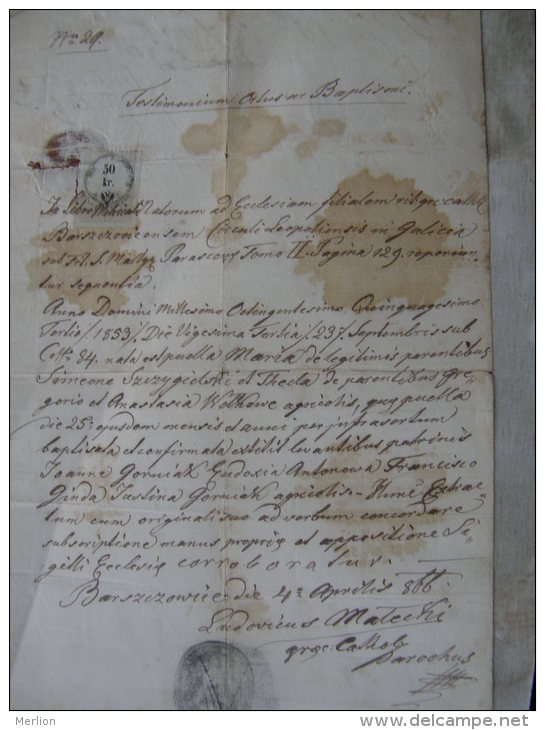 Nro 29.
Testimonium Ortus ac Baptismi.
50
kr.
In Libro Natorum ad Ecclesiam filialem rit. gr. cath.
Barszczovicensem Circuli Leopoliensis in Galicia
sub tit. S. Parascev Tomo II. Pagina 129. reperiun-
tur sequentia.
Anno Domini Millesimo Octingentesimo Quinquagesimo
Tertio /1853/ Die Vigesima Tertia /23/ Septembris sub
84. nata est puella Maria de legitimis parentibus
Simeone Szczygielski et Thecla de parentibus Gre-
gorio et Anastasia Wolkowe agricolis, quę puella
die 25a ejusdem mensis et anni per infrascriptum
baptisata et confirmata extitit levantibus patrinis
Joanne Gorniak Eudoxia Antonowa Francisco
Ginda Justina Gorniak agricolis. Hunc Extrac-
tum cum originali suo ad verbum concordare
subscriptione manus proprię et appositione Si-
gilli Ecclesię corroboratur.
Barszczowice die 4a Aprilis 866.
Ludovicus Malecki
gręc: Cathol
Parochus
Merlion
www.delcampe.net